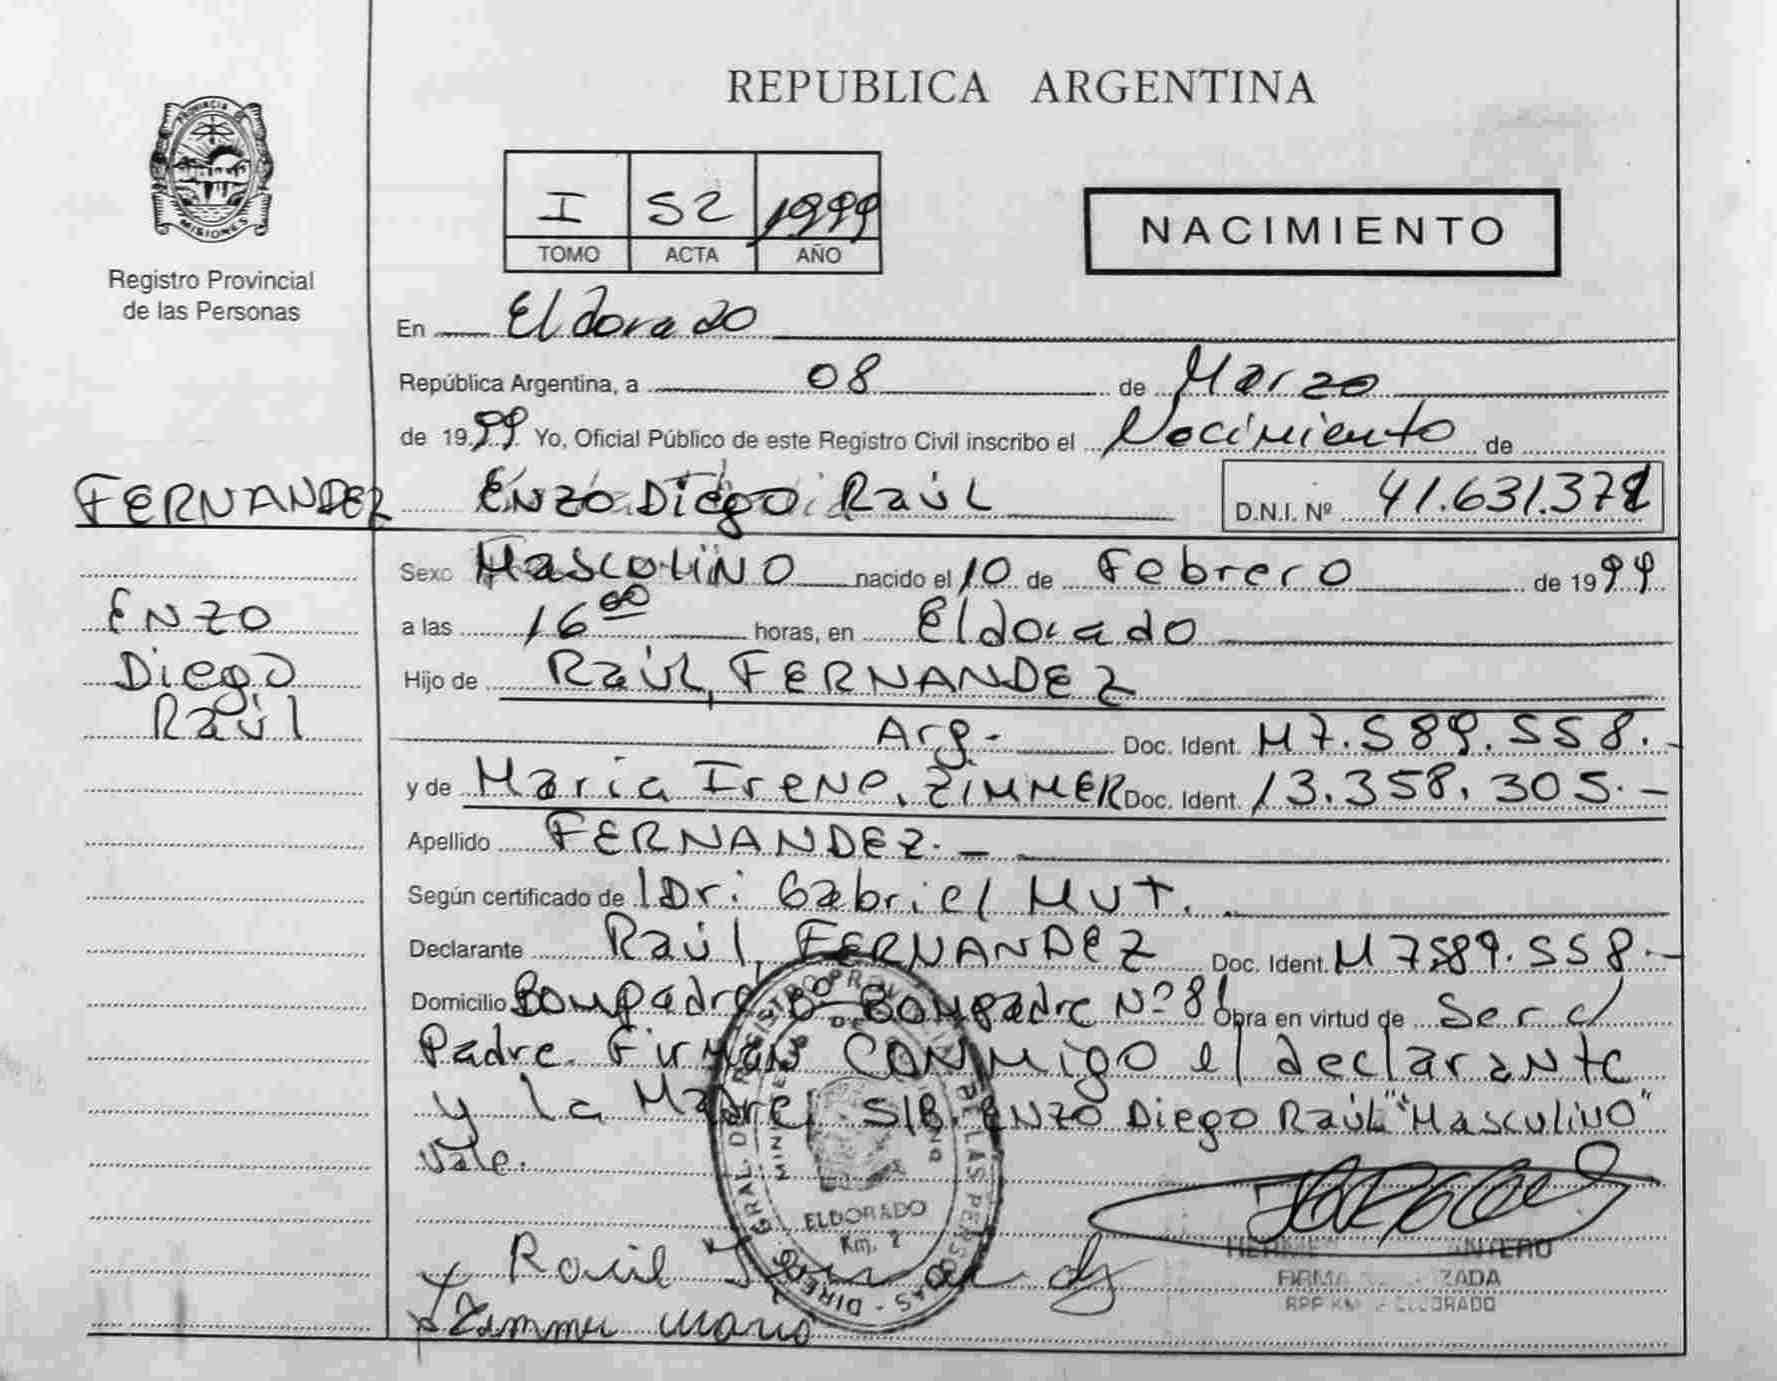 REPUBLICA ARGENTINA
PROVINCIA DE
MISIONES
Registro Provincial
de las Personas
I 52 1999
TOMO ACTA AÑO
NACIMIENTO
En Eldorado
República Argentina, a 08 de Marzo
de 1999 Yo, Oficial Público de este Registro Civil inscribo el Nacimiento de
FERNANDEZ Enzo Diego Raúl D.N.I. Nº 41.631.371
Sexo Masculino nacido el 10 de Febrero de 1999
Enzo
a las 16 00 horas, en Eldorado
Diego
Hijo de Raúl, FERNANDEZ
Raúl
Arg.- Doc. Ident. M7.589.558.-
y de Maria Irene, ZIMMER Doc. Ident. 13.358.305.-
Apellido FERNANDEZ.-
Según certificado de Gabriel Mut.
Declarante Raúl, FERNANDEZ Doc. Ident. M 7589.558.-
Domicilio Bompadre Bº Bompadre Nº 81 Obra en virtud de Ser el
Padre. Firman CONMigo el declarante
y la Madre, S/B. ENZO Diego Raúl" "Masculino"
Vale.
ELDORADO
Km. 2
Raúl
Zimmer Maria
FIRMA
ELDORADO